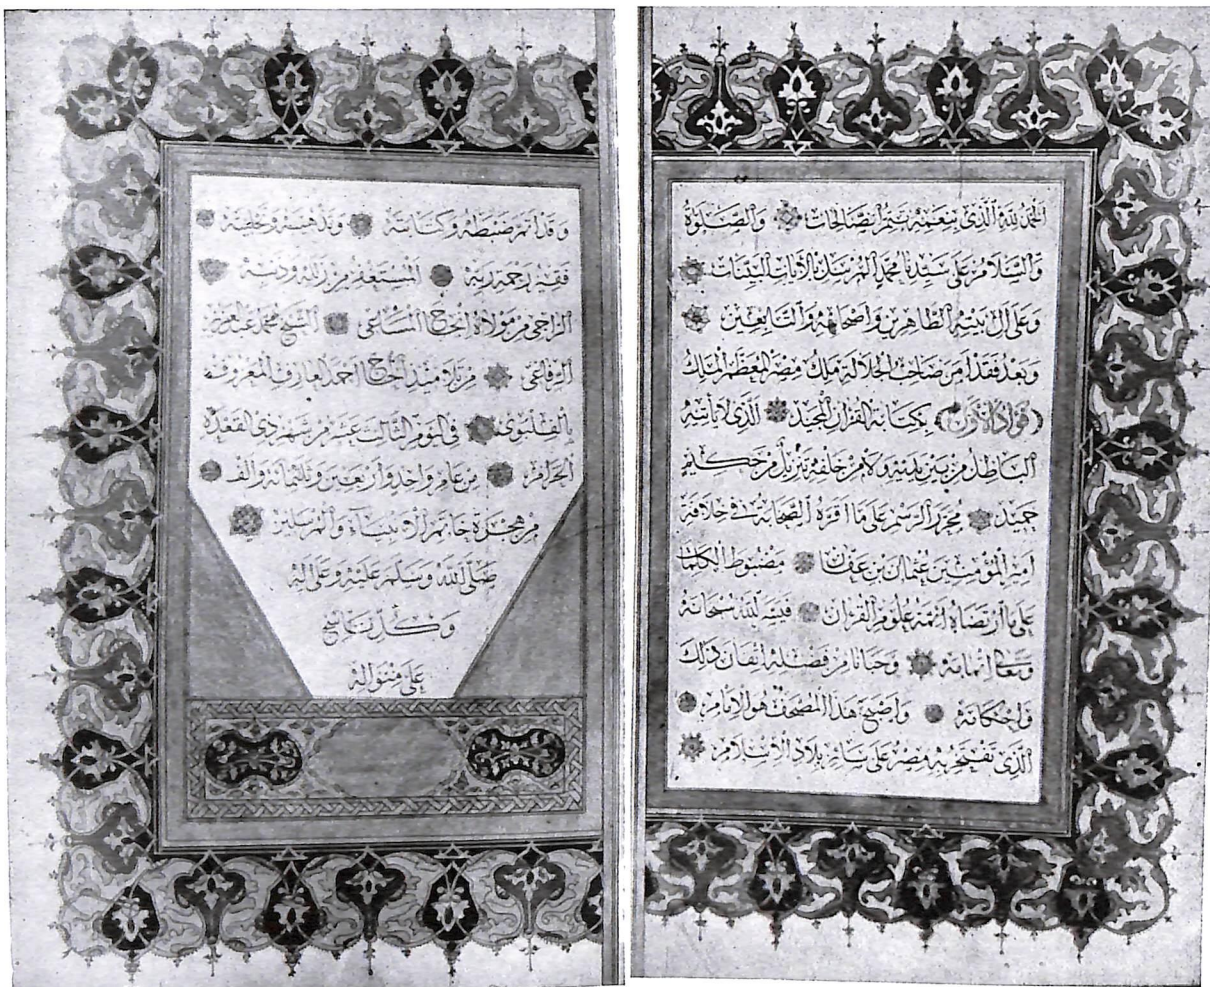 الحمد لله الذي بنعمته تتم الصالحات والصلاة
والسلام على سيدنا محمد المرسل بالآيات البينات
وعلى آل بيته الطاهرين وأصحابه والتابعين
وبعد فقد أمر صاحب الجلالة ملك مصر المعظم الملك
(فؤاد الأول) بكتابة القرآن المجيد الذي لا يأتيه
الباطل من بين يديه ولا من خلفه تنزيل من حكيم
حميد محرر الرسم على ما أقره الصحابة في خلافة
أمير المؤمنين عثمان بن عفان مضبوط الكلمات
على ما ارتضاه أئمة علوم القرآن فيسر الله سبحانه
وتعالى إتمامه وحبانا من فضله إتقان ذلك
وإحكامه وأصبح هذا المصحف هو الإمام
الذي تفتخر به مصر على سائر بلاد الإسلام
وقد أتم ضبطه وكتابته وتذهيبه وتحليته
فقير رحمة ربه المستغفر من زلله وذنبه
الراجي من مولاه انجح المساعي الشيخ محمد عبد العزيز
الرفاعي من تلاميذ الحاج أحمد العارف المعروف
بالفلبوي في اليوم الثالث عشر من شهر ذي القعدة
الحرام من عام واحد وأربعين وثلثمائة وألف
من هجرة خاتم الأنبياء والمرسلين
صلى الله وسلم عليه وعلى آله
وكل ناسج
على منواله